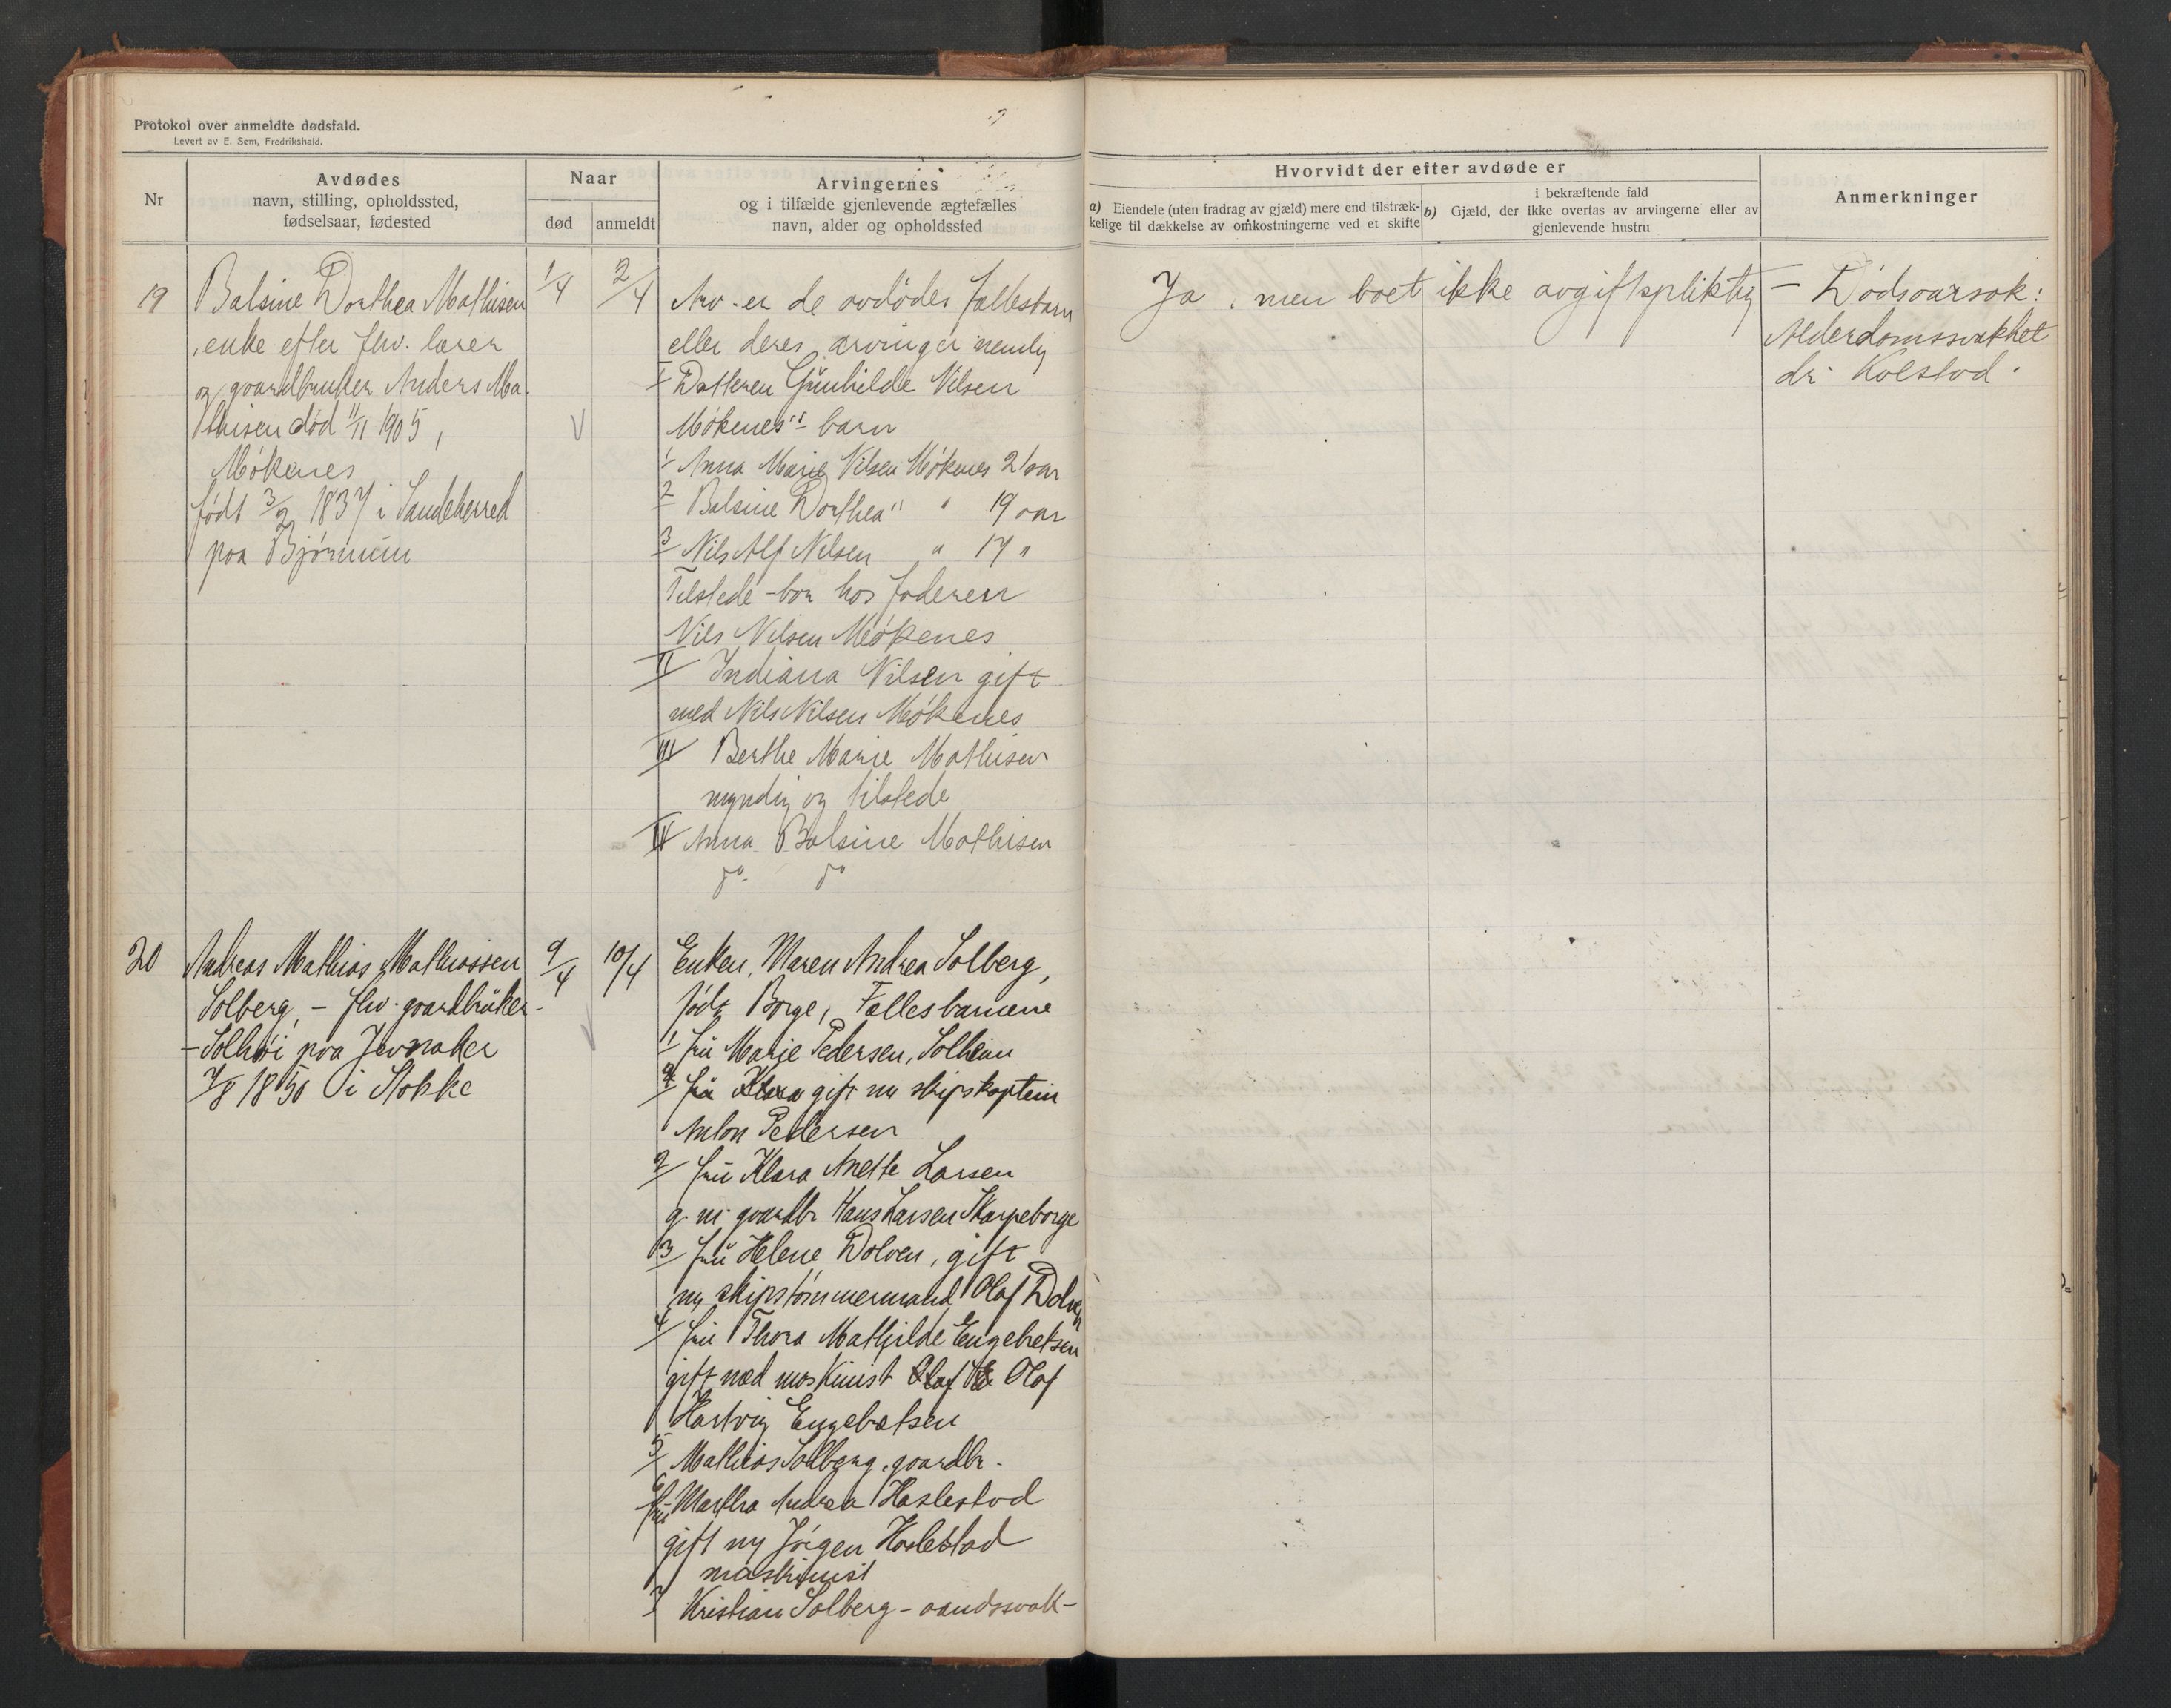 Protokol over anmeldte dødsfald.
Levert av E. Sem, Fredrikshald.
Nr
Avdødes
navn, stilling, opholdssted,
fødselsaar, fødested
Naar
død
anmeldt
Arvingernes
og i tilfælde gjenlevende ægtefælles
navn, alder og opholdssted
Hvorvidt der efter avdøde er
a) Eiendele (uten fradrag av gjæld) mere end tilstræk-
kelige til dækkelse av omkostningerne ved et skifte
i bekræftende fald
b) Gjæld, der ikke overtas av arvingerne eller av
gjenlevende hustru
Anmerkninger
19
Balsine Dorthea Mathisen
enke efter fhv. lærer
og gaardbruker Anders Ma-
thisen død 11/11 1905,
Møkenes
født 3/2 1837 i Sandeherred
paa Bjørnum
1/4
2/4
Arv. er de avdødes fællesbarn
eller deres arvinger nemlig
I Datteren Gunhilde Nilsen
Møkenes's barn
1 Anna Marie Nilsen Møkenes 21 aar
2 Balsine Dorthea " " 19 aar
3 Nils Alf Nilsen " 17 "
Tilstede - bor hos faderen
Nils Nilsen Møkenes
II Indiana Nilsen gift
med Nils Nilsen Møkenes
III Berthe Marie Mathisen
myndig og tilstede
IV Anna Balsine Mathisen
do. do
Ja, men boet ikke avgiftspliktig
- Dødsaarsak:
Alderdomssvakhet
dr. Kolstad.
20
Andreas Mathias Mathiassen
Solberg, - fhv. gaardbruker -
- Solhøi paa Jevnaker
7/8 1850 i Stokke
9/4
10/4
Enken, Maren Andrea Solberg,
født Borge, Fællesbarnene
1 fru Marie Pedersen, Solheim
fru Klara gift m skipskaptein
Anton Pedersen
2 fru Klara Anette Larsen
g. m. gaardbr Hans Larsen Skarpeborge
3 fru Helene Dolven, gift
m skipstømmermand Olaf Dolven
4 fru Thora Mathilde Engebretsen
gift med maskinist Olaf E Olaf
Hartvig Engebretsen
5 Mathias Solberg, gaardbr.
6 fru Martha Andrea Haslestad
gift m Jørgen Haslestad
maskinist
7 Kristian Solberg - aandssvak -